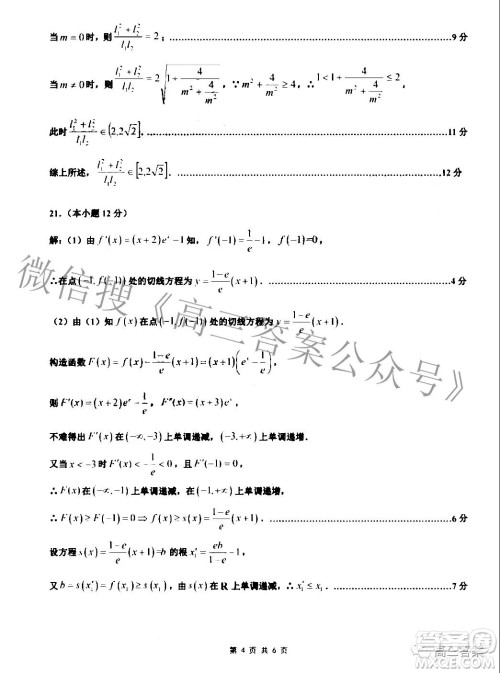 当 m = 0 时，则 \frac{l_1^2+l_2^2}{l_1l_2}=2；……9 分
当 m ≠ 0 时，则 \frac{l_1^2+l_2^2}{l_1l_2}=2\sqrt{1+\frac{4}{m^2+\frac{4}{m^2}}}，∵ m^2+\frac{4}{m^2}≥4，∴ 1<1+\frac{4}{m^2+\frac{4}{m^2}}≤2
此时 \frac{l_1^2+l_2^2}{l_1l_2}∈(2,2\sqrt{2}]……11 分
综上所述，\frac{l_1^2+l_2^2}{l_1l_2}∈[2,2\sqrt{2}]．……12 分
21.（本小题 12 分）
解：（1）由 f'(x)=(x+2)e^x-1 知，f'(-1)=\frac{1}{e}-1，f(-1)=0，
∴在点(-1,f(-1))处的切线方程为 y=\frac{1-e}{e}(x+1)．……4 分
（2）由（1）知 f(x) 在点(-1,f(-1))处的切线方程为 y=\frac{1-e}{e}(x+1)．
构造函数 F(x)=f(x)-\frac{1-e}{e}(x+1)=(x+1)(e^x-\frac{1}{e})，
则 F'(x)=(x+2)e^x-\frac{1}{e}，F''(x)=(x+3)e^x，
不难得出 F'(x) 在(-∞,-3)上单调递减，(-3,+∞)上单调递增．
又当 x<-3 时 F'(x)<-\frac{1}{e}<0，且 F'(-1)=0
∴ F(x) 在(-∞,-1)上单调递减，在(-1,+∞)上单调递增．
∴ F(x)≥F(-1)=0⇒f(x)≥s(x)=\frac{1-e}{e}(x+1)．……6 分
设方程 s(x)=\frac{1-e}{e}(x+1)=b 的根 x_1'=\frac{eb}{1-e}-1，
又 b=s(x_1')=f(x_1)≥s(x_1)，由 s(x) 在 R 上单调递减，∴ x_1'≤x_1．……7 分
第 4 页 共 6 页
微信搜《高三答案公众号》
高三答案